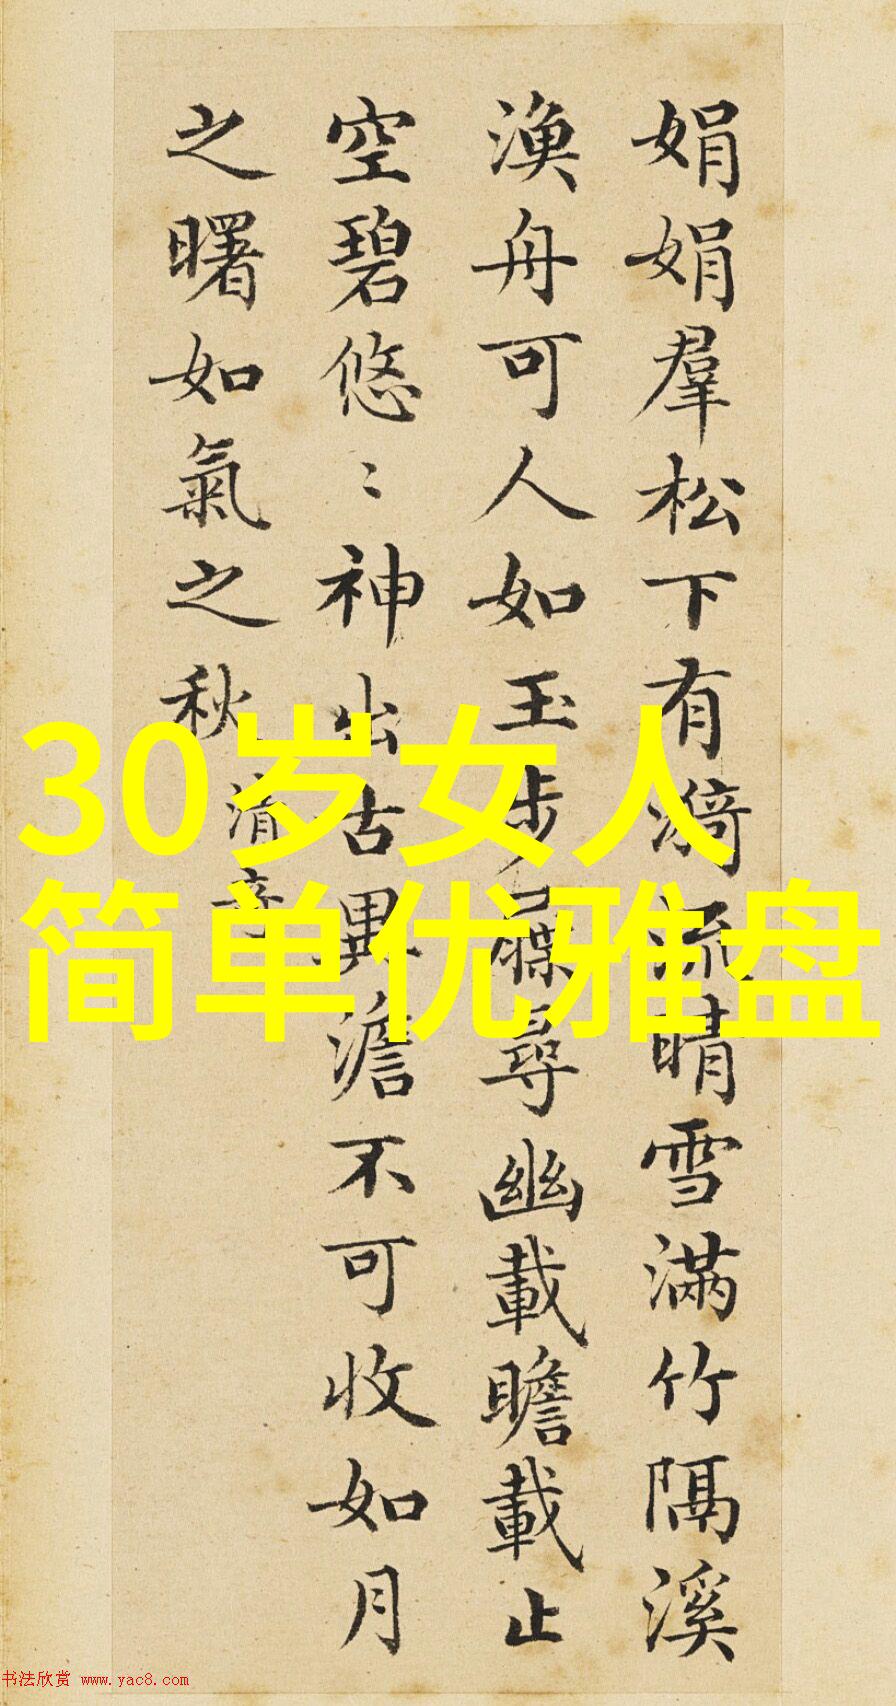 娟娟羣松下有漪流晴雪滿竹隔溪
漁舟可人如玉步屧尋幽載瞻載止
空碧悠〻神出古異澹不可收如月
之曙如氣之秋
清奇
30岁女人
简单优雅盘
书法欣赏 www.yac8.com